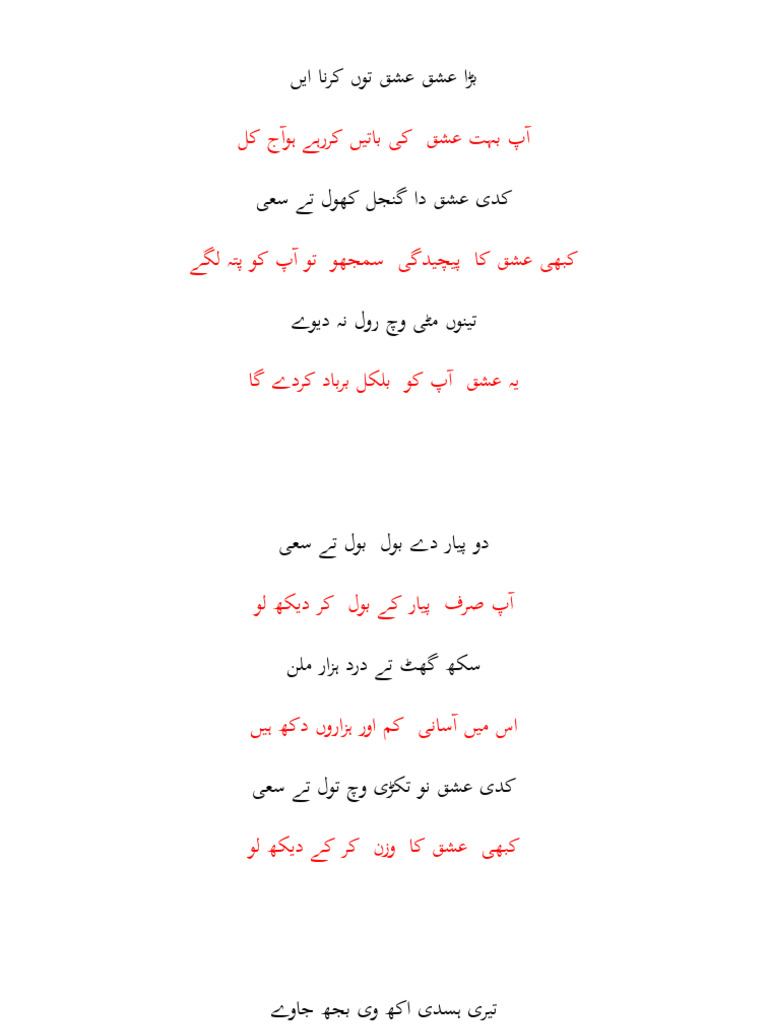 بڑا عشق عشق توں کرنا ایں
آپ بہت عشق کی باتیں کررہے ہوآج کل
کدی عشق دا گنجل کھول تے سعی
کبھی عشق کا پیچیدگی سمجھو تو آپ کو پتہ لگے
تینوں مٹی وچ رول نہ دیوے
یہ عشق آپ کو بلکل برباد کردے گا
دو پیار دے بول بول تے سعی
آپ صرف پیار کے بول کر دیکھ لو
سکھ گھٹ تے درد ہزار ملن
اس میں آسانی کم اور ہزاروں دکھ ہیں
کدی عشق نو تکڑی وچ تول تے سعی
کبھی عشق کا وزن کر کے دیکھ لو
تیری ہسدی اکھ وی بجھ جاوے